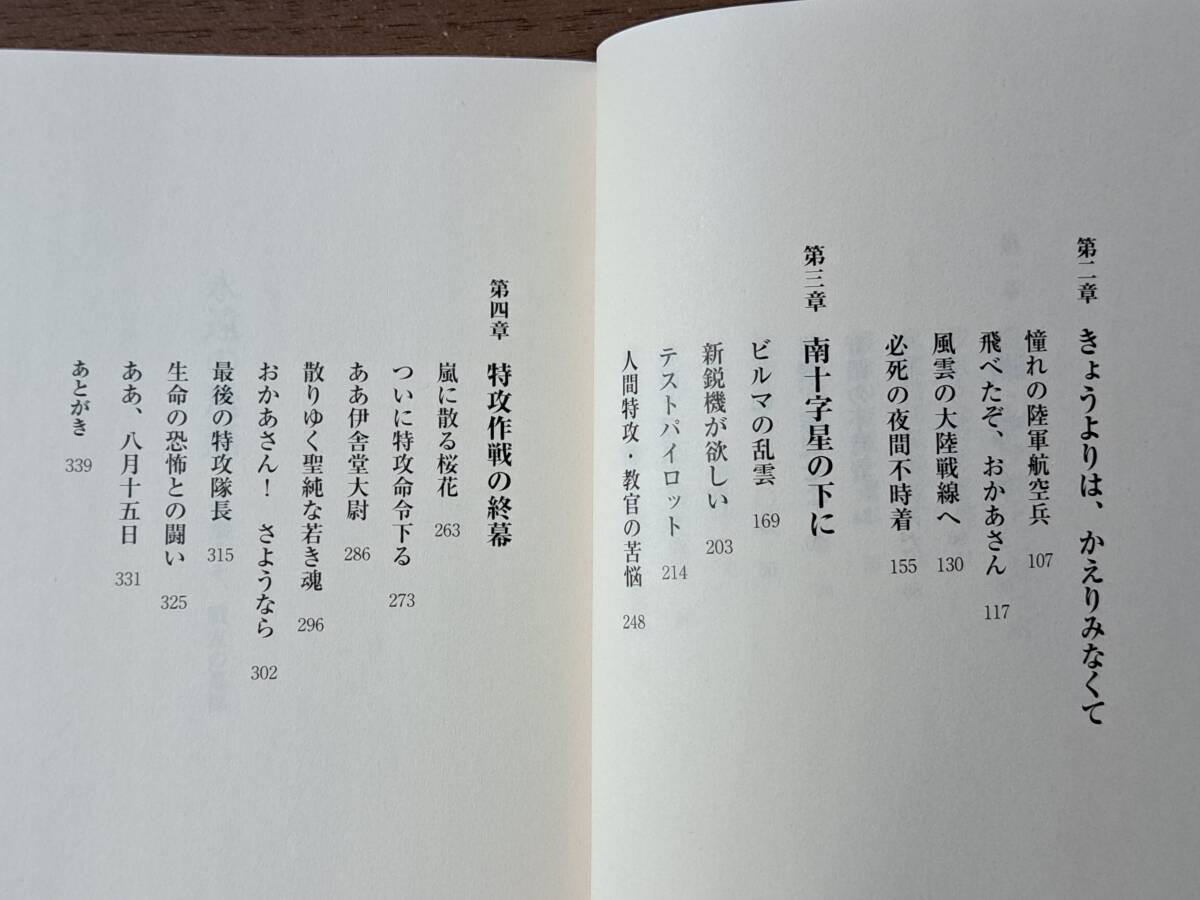 第二章 きょうよりは、かえりみなくて
憧れの陸軍航空兵 107
飛べたぞ、おかあさん 117
風雲の大陸戦線へ 130
必死の夜間不時着 155
第三章 南十字星の下に
ビルマの乱雲 169
新鋭機が欲しい 203
テストパイロット 214
人間特攻・教官の苦悩 248
第四章 特攻作戦の終幕
嵐に散る桜花 263
ついに特攻命令下る 273
ああ伊舎堂大尉 286
散りゆく聖純な若き魂 296
おかあさん! さようなら 302
最後の特攻隊長 315
生命の恐怖との闘い 325
ああ、八月十五日 331
あとがき 339